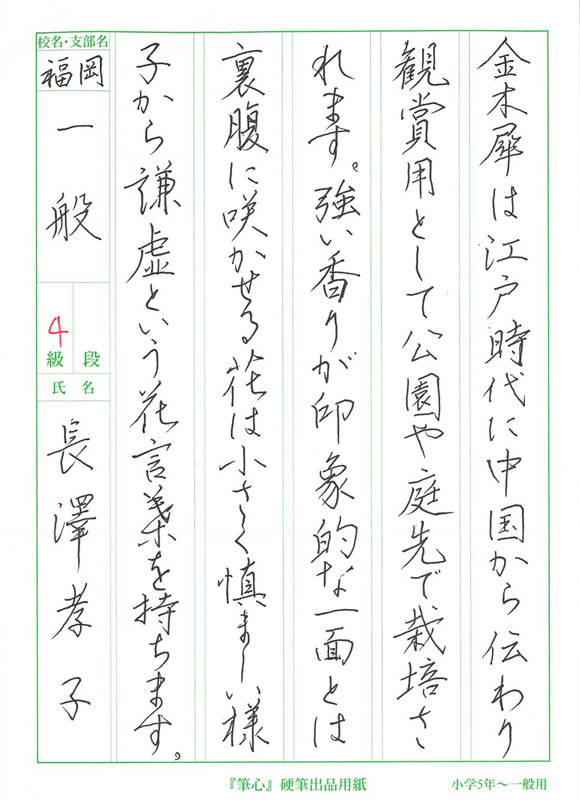 金木犀は江戸時代に中国から伝わり
観賞用として公園や庭先で栽培さ
れます。強い香りが印象的な一面とは
裏腹に咲かせる花は小さく慎ましい様
子から謙虚という花言葉を持ちます。
校名・支部名
福岡
一般
4級
段
氏名
長澤孝子
『筆心』硬筆出品用紙
小学5年〜一般用